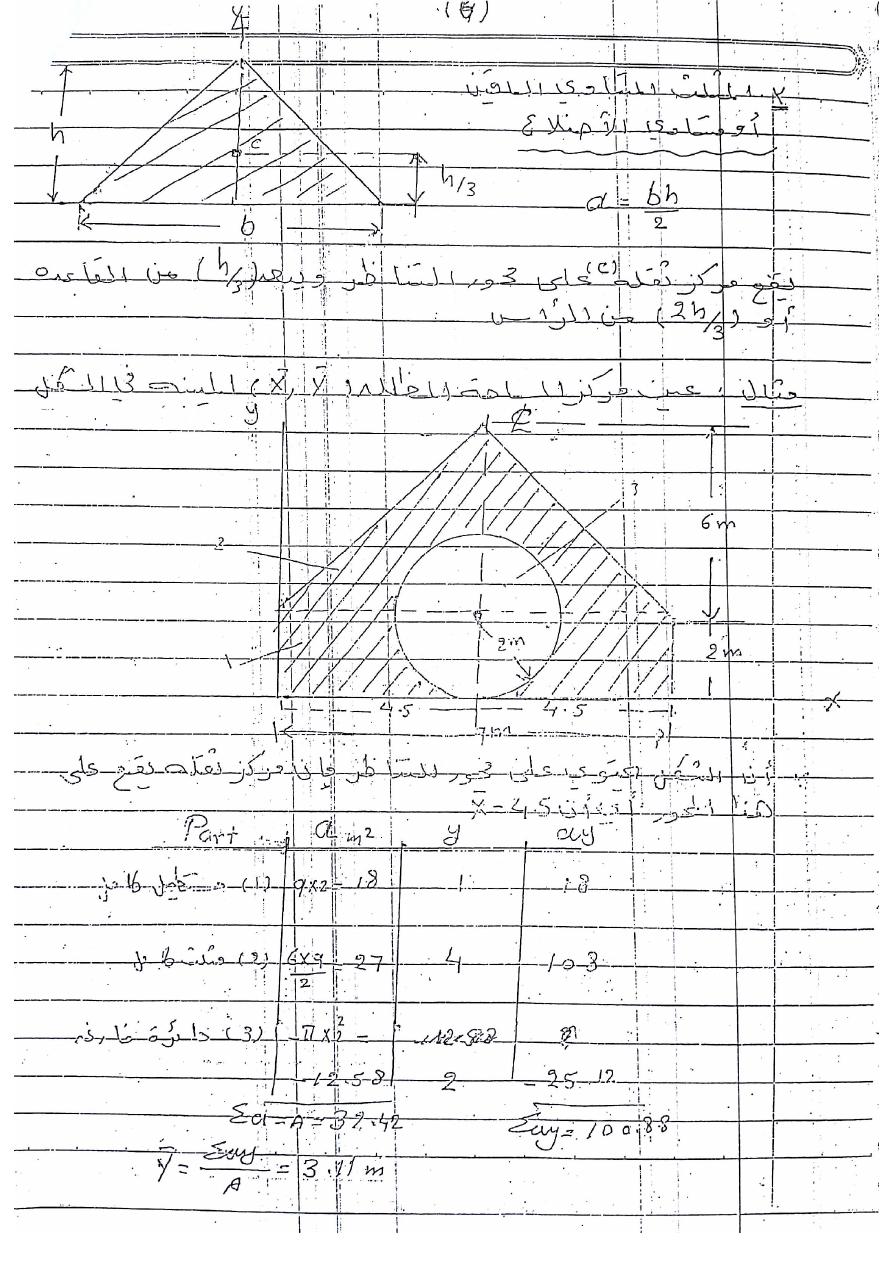 (4)
y
٢. المثلث المتساوي الساقين
أو متساوي الأضلاع
h
c
h/3
b
a = bh/2
يقع مركز ثقله (c) على محور التناظر ويبعد (h/3) من القاعده
أو (2h/3) من الرأس
مثال : عين مركز المساحة المظلله (X̄, Ȳ) المبينه في الشكل
y
℄
3
6m
2
2m
1
2m
x
4.5 4.5
أن الشكل يحتوي على محور للتناظر فإن مركز ثقله يقع على
هذا المحور أي أن X̄ = 4.5
Part a m² y ay
(1) مستطيل كامل 9x2 = 18 1 18
(2) مثلث كامل 6x9/2 = 27 4 103
(3) دائرة فارغه -πx2² =
-12.58 2 -25.12
Σa = A = 32.42 Σay = 100.88
Ȳ = Σay/A = 3.11 m